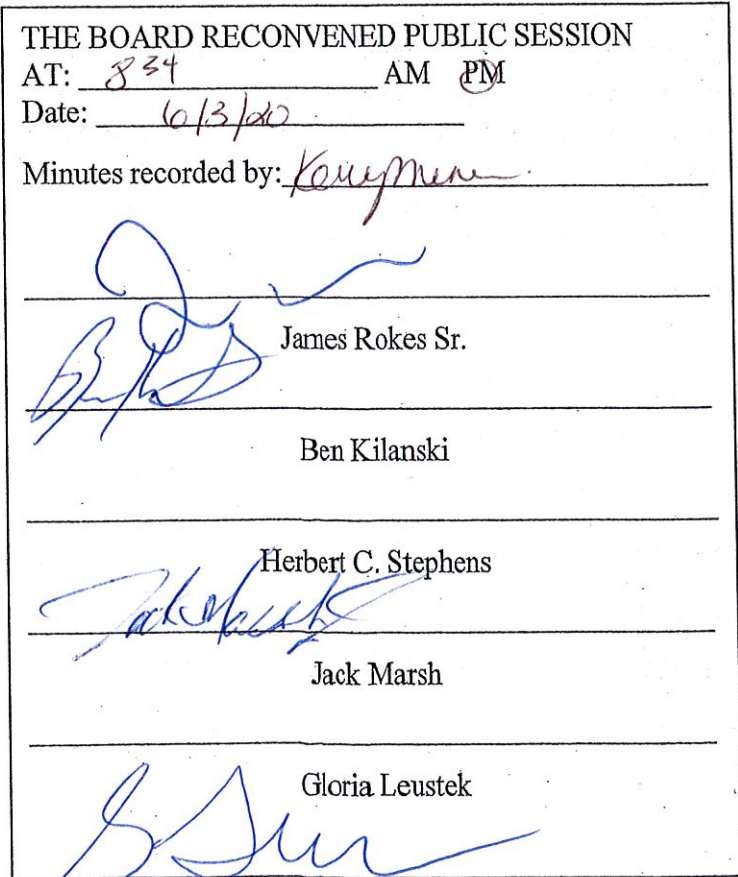 THE BOARD RECONVENED PUBLIC SESSION
AT: 834 AM PM
Date: 6/3/20
Minutes recorded by:
James Rokes Sr.
Ben Kilanski
Herbert C. Stephens
Jack Marsh
Jack Marsh
Gloria Leustek